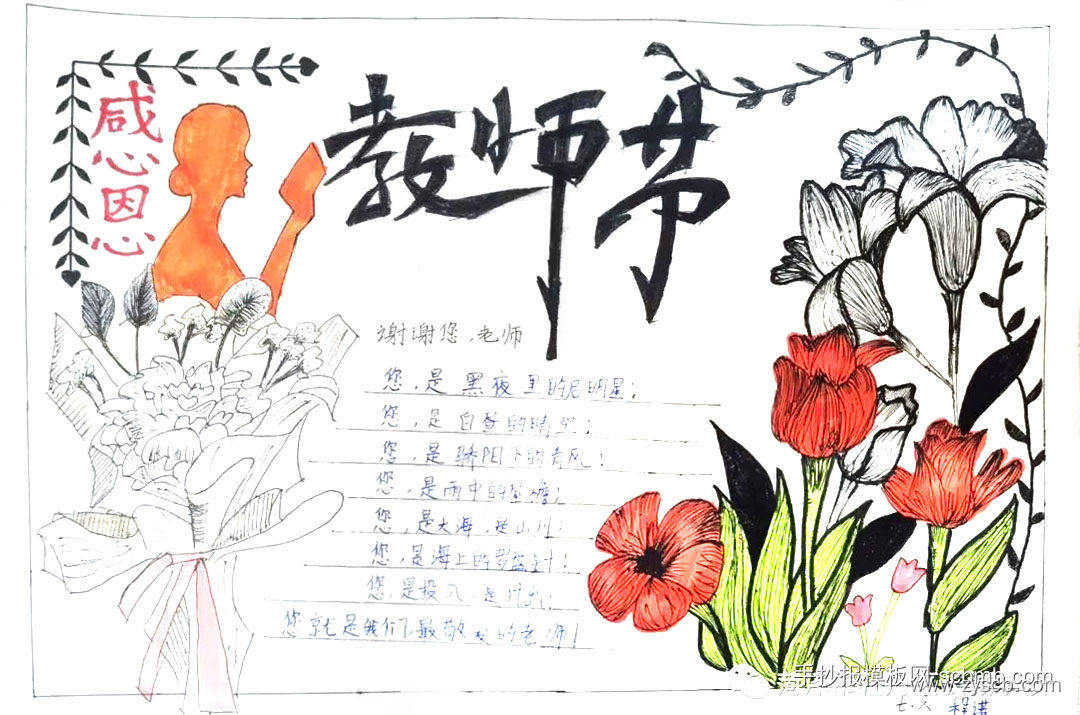 感心恩心
教师节
谢谢您，老师
您，是黑夜里的启明星；
您，是白昼的晴空；
您，是骄阳下的清风；
您，是雨中的屋檐；
您，是大海，是山川；
您，是海上的罗盘针；
您，是投入，是付出；
您就是我们最敬爱的老师！
手抄报模板网-schmb.com
www.zyscb.com
七·六 程诺